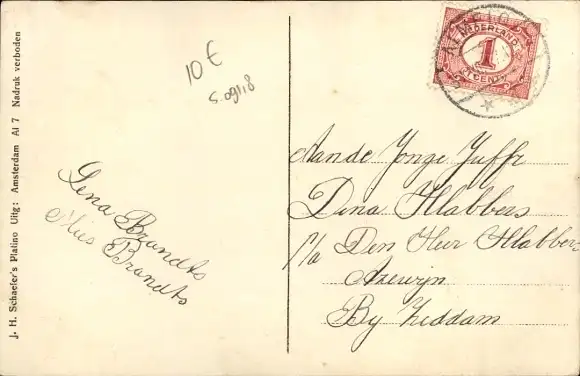 J. H. Schaefer's Platino Uitg: Amsterdam Al 7 Nadruk verboden
10 €
S-09118
Lena Brandts
Mies Brandts
NEDERLAND
1
CENT
Aan de Jonge Juffr
Dina Klabbers
P/a Den Heer Klabbers
Azewijn
By Zeddam